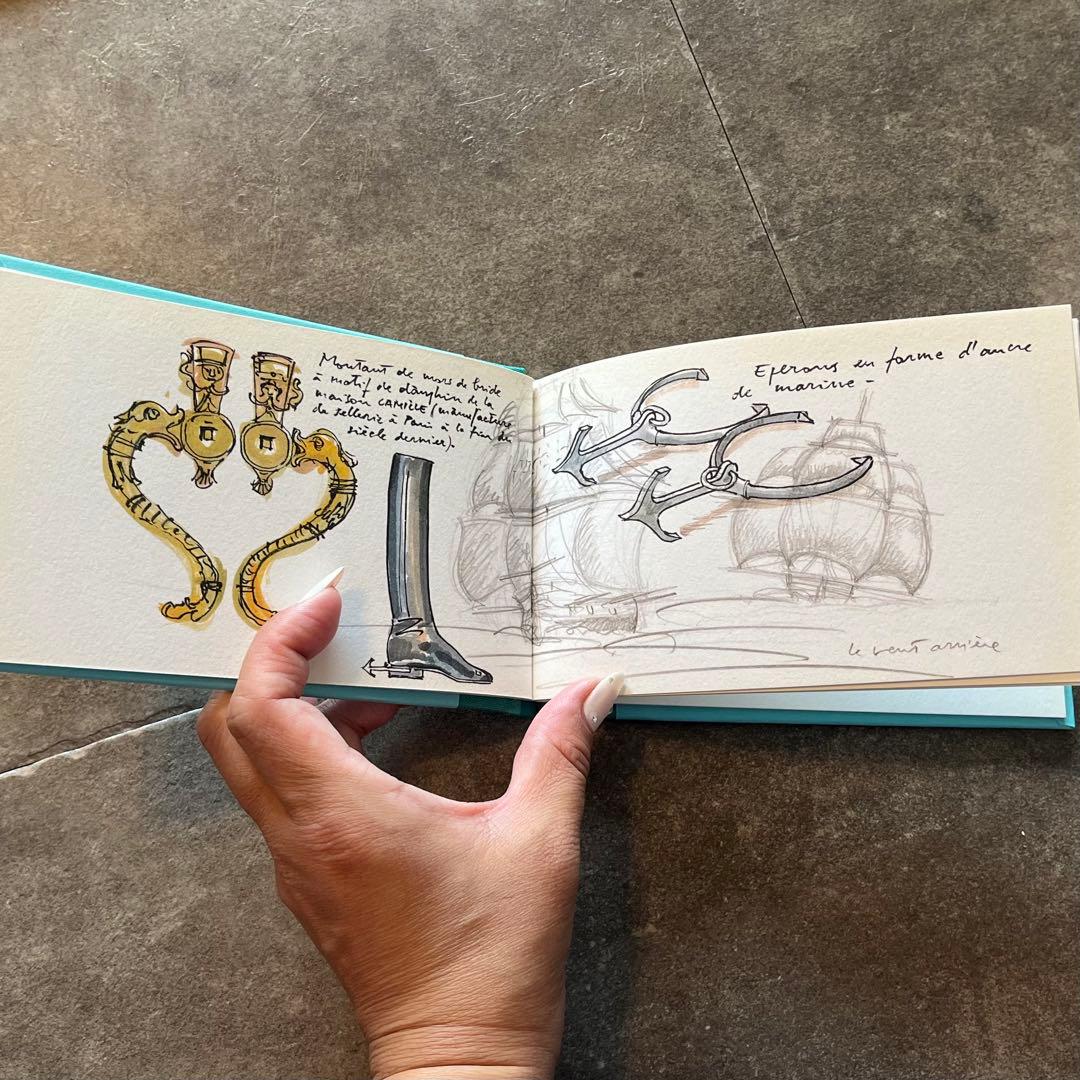 Montant de mors de bride
à motif de dauphin de la
maison CAMILLE (manufacture
de sellerie à Paris à la fin du
siècle dernier).
Eperons en forme d'ancre
de marine -
le vent arrière